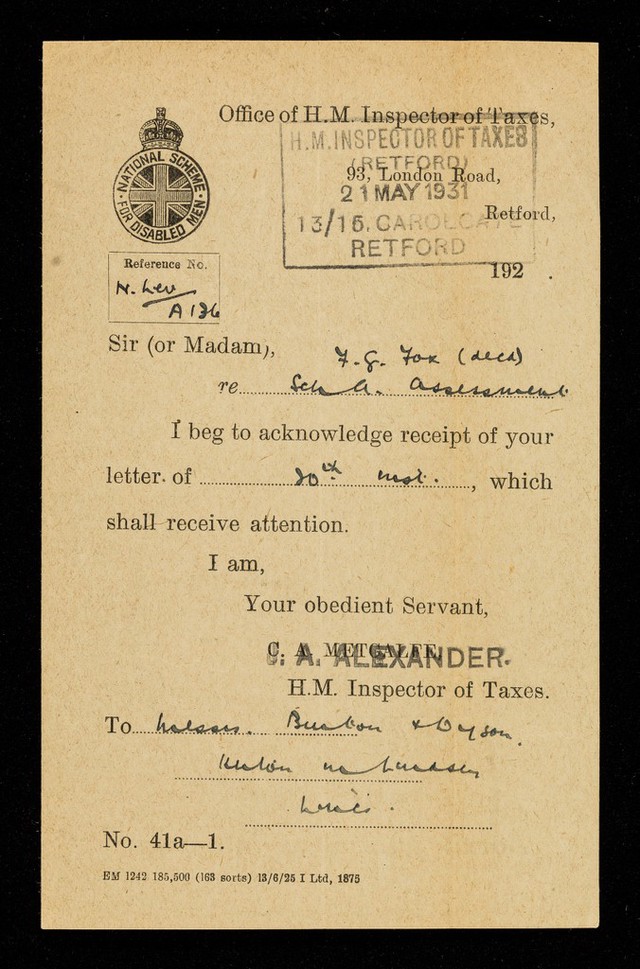 Office of H.M. Inspector of Taxes,
H.M. INSPECTOR OF TAXES
(RETFORD)
93, London Road,
21 MAY 1931
Retford,
13/15, CAROLGATE
RETFORD
192 .
NATIONAL SCHEME
FOR DISABLED MEN
Reference No.
A 136
Sir (or Madam),
F. G. Fox (decd)
re Sch A. Assessment
I beg to acknowledge receipt of your
letter of 20th inst., which
shall receive attention.
I am,
Your obedient Servant,
C. A. METCALFE,
C. A. ALEXANDER.
H.M. Inspector of Taxes.
To Messrs. Burton & Dyson.
Kirton in Lindsey
Lincs.
No. 41a—1.
EM 1242 185,500 (163 sorts) 13/6/25 I Ltd, 1875